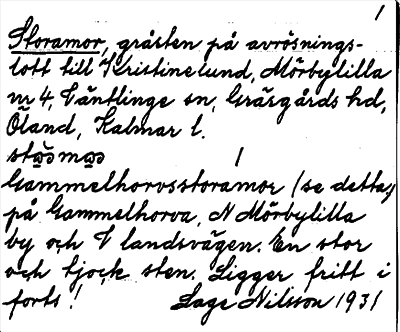 1
Storamor, gråsten på avrösnings-
lott till Kristinelund, Mörbylilla
nr 4, Ventlinge sn, Gräsgårds hd,
Öland, Kalmar l.
1
Gammelhorvsstoramor (se detta,)
på Gammelhorva, N Mörbylilla
by och V landsvägen. En stor
och tjock sten. Ligger fritt i
forts! Lage Nilsson 1931